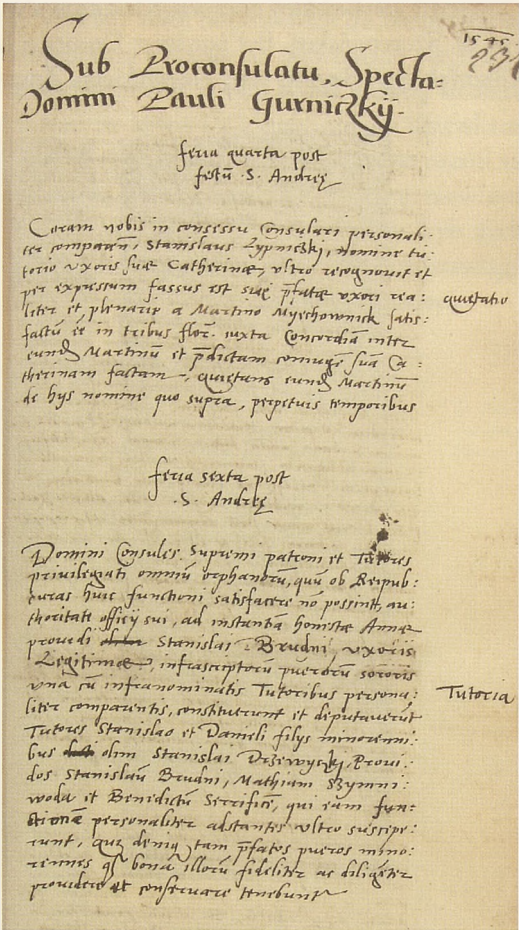 1545
231
Sub Proconsulatu, Specta=
Domini Pauli Gurniczkÿ.
feria quarta post
festū .S. Andreę
Coram nobis in consessu Consulari personali:
ter comparen, Stanislaus Lypniczki, nomine tu:
torio vxoris suæ Catherinæ, vltro recognouit et
per expressum fassus est suę p̄fatæ vxori rea:
liter et plenarie a Martino Myechownick satis:
factū eē in tribus flor. iuxta Concordiā inter
eund Martinū et p̄dictam coniugē suā Ca:
therinam factam, quietans eund Martinū
de hys nomine quo supra, perpetuis temporibus
quietatio
feria sexta post
.S. Andreę
Domini Consules, Supremi patroni et Tutores
priuilegiati omniū orphanorū, quū ob Reipub:
curas huic functioni satisfacere nō possint, au:
thoritate officÿ sui, ad instantiā honestæ Annæ
prouidi Stanislai Brudni, vxoris
Legitimæ, infrascriptorū puerorū sororis
vna cū infranominatis Tutoribus persona:
liter comparentis, constituerunt et deputauerūt
Tutores Stanislao et Danieli filÿs minorenni:
bus olim Stanislai Drzewyczki, Proui:
dos Stanislaū Brudni, Mathiam Szymni:
woda et Benedictū Serrificē, qui eam fun:
ctionē personaliter adstantes vltro suscepe:
runt, tam p̄fatos pueros mino:
rennes q̄ bona illorū fideliter ac diligēter
prouidere et conseruare tenebunt
Tutoria